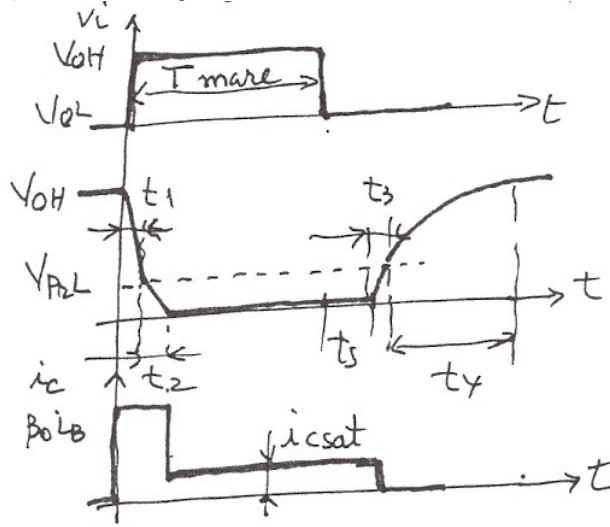 Vi
VOH
T mare
VOL
t
VOH
t1
t3
VPRL
t
t2
ts
t4
ic
β0iB
icsat
t